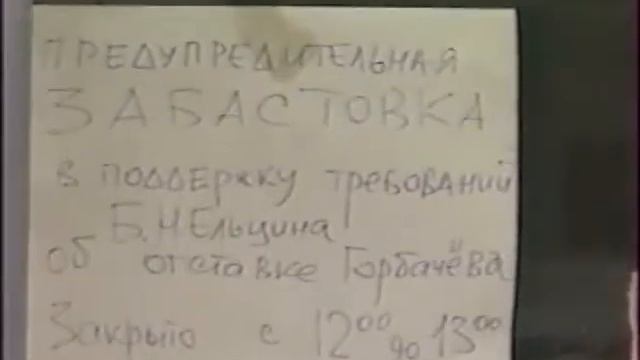 ПРЕДУПРЕДИТЕЛЬНАЯ
ЗАБАСТОВКА
в поддержку требований
Б.Н Ельцина
об отставке Горбачёва
Закрыто с 12⁰⁰ до 13⁰⁰